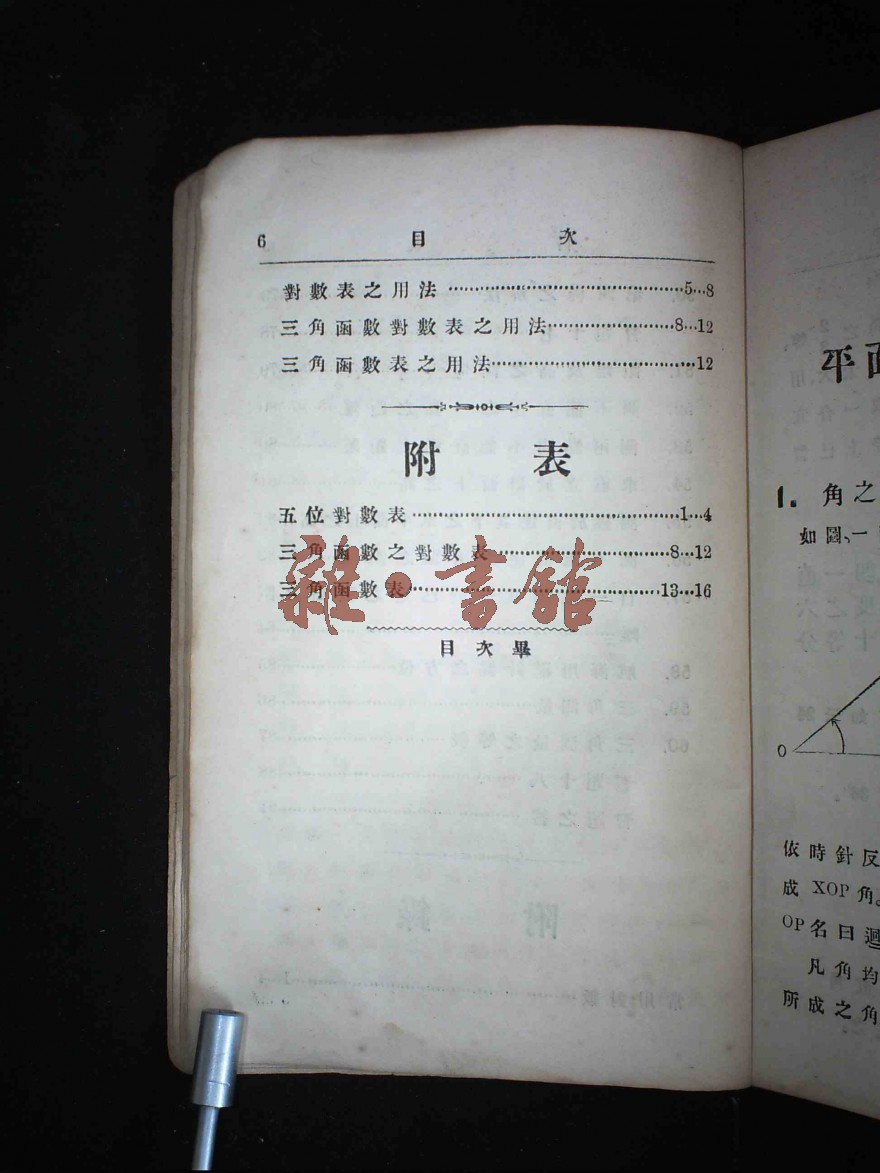 6 目 次
對數表之用法 5…8
三角函數對數表之用法 8…12
三角函數表之用法 12
附 表
五位對數表 1…4
三角函數之對數表 8…12
三角函數表 13…16
目次畢
雜·書館
平面
1. 角之
如圖、一
O
依時針反
成 XOP 角。
OP名曰迴
凡角均
所成之角